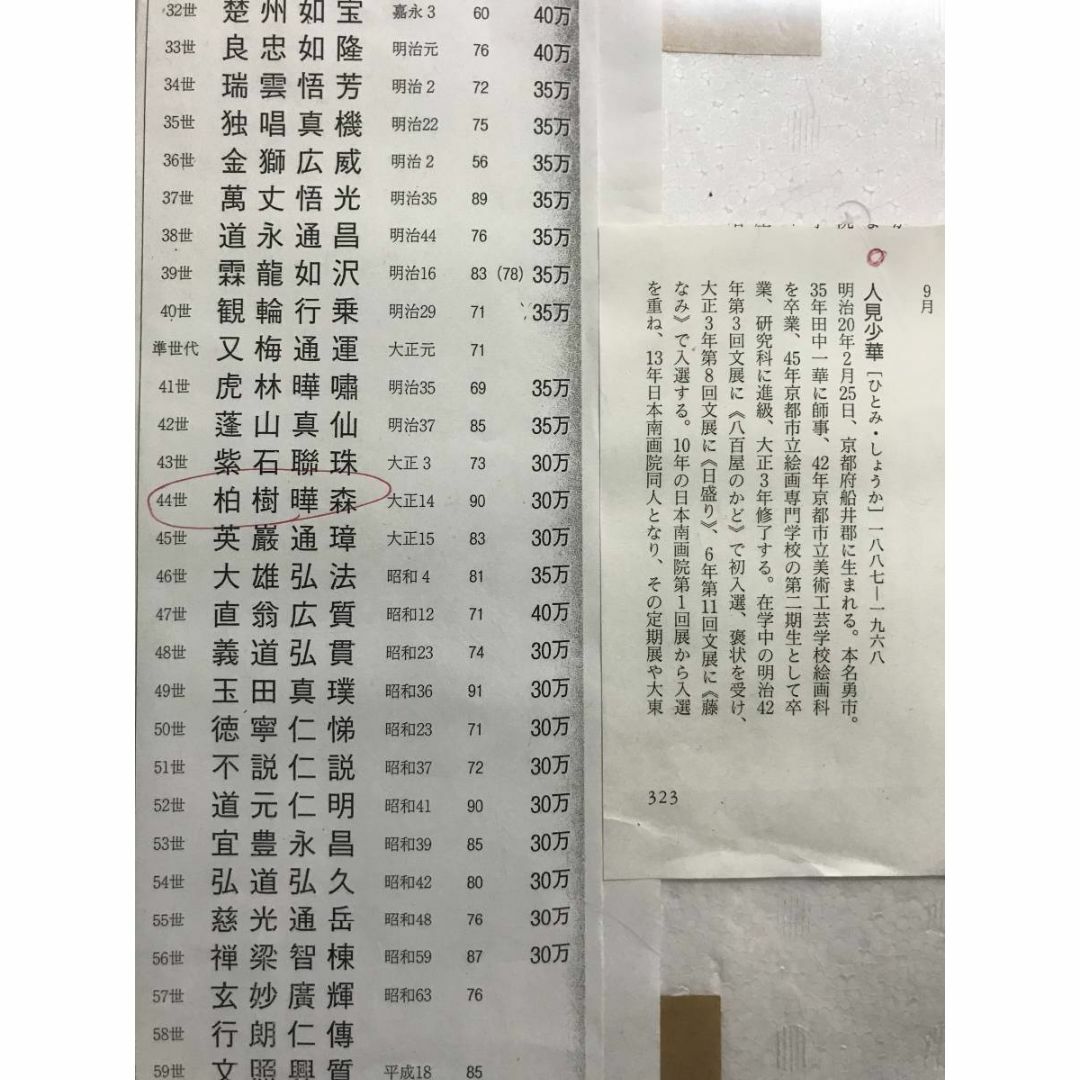 32世 楚州如宝 嘉永3 60 40万
33世 良忠如隆 明治元 76 40万
34世 瑞雲悟芳 明治2 72 35万
35世 独唱真機 明治22 75 35万
36世 金獅広威 明治2 56 35万
37世 萬丈悟光 明治35 89 35万
38世 道永通昌 明治44 76 35万
39世 霖龍如沢 明治16 83(78) 35万
40世 観輪行乗 明治29 71 35万
準世代 又梅通運 大正元 71
41世 虎林曄嘯 明治35 69 35万
42世 蓬山真仙 明治37 85 35万
43世 紫石聯珠 大正3 73 30万
44世 柏樹曄森 大正14 90 30万
45世 英巖通璋 大正15 83 30万
46世 大雄弘法 昭和4 81 35万
47世 直翁広質 昭和12 71 40万
48世 義道弘貫 昭和23 74 30万
49世 玉田真璞 昭和36 91 30万
50世 徳寧仁悌 昭和23 71 30万
51世 不説仁説 昭和37 72 30万
52世 道元仁明 昭和41 90 30万
53世 宜豊永昌 昭和39 85 30万
54世 弘道弘久 昭和42 80 30万
55世 慈光通岳 昭和48 76 30万
56世 禅梁智棟 昭和59 87 30万
57世 玄妙廣輝 昭和63 76
58世 行朗仁傳
59世 文照興質 平成18 85
9月
人見少華［ひとみ・しょうか］一八八七―一九六八
明治20年2月25日、京都府船井郡に生まれる。本名勇市。
35年田中一華に師事、42年京都市立美術工芸学校絵画科
を卒業、45年京都市立絵画専門学校の第二期生として卒
業、研究科に進級、大正3年修了する。在学中の明治42
年第3回文展に《八百屋のかど》で初入選、褒状を受け、
大正3年第8回文展に《日盛り》、6年第11回文展に《藤
なみ》で入選する。10年の日本南画院第1回展から入選
を重ね、13年日本南画院同人となり、その定期展や大東
323